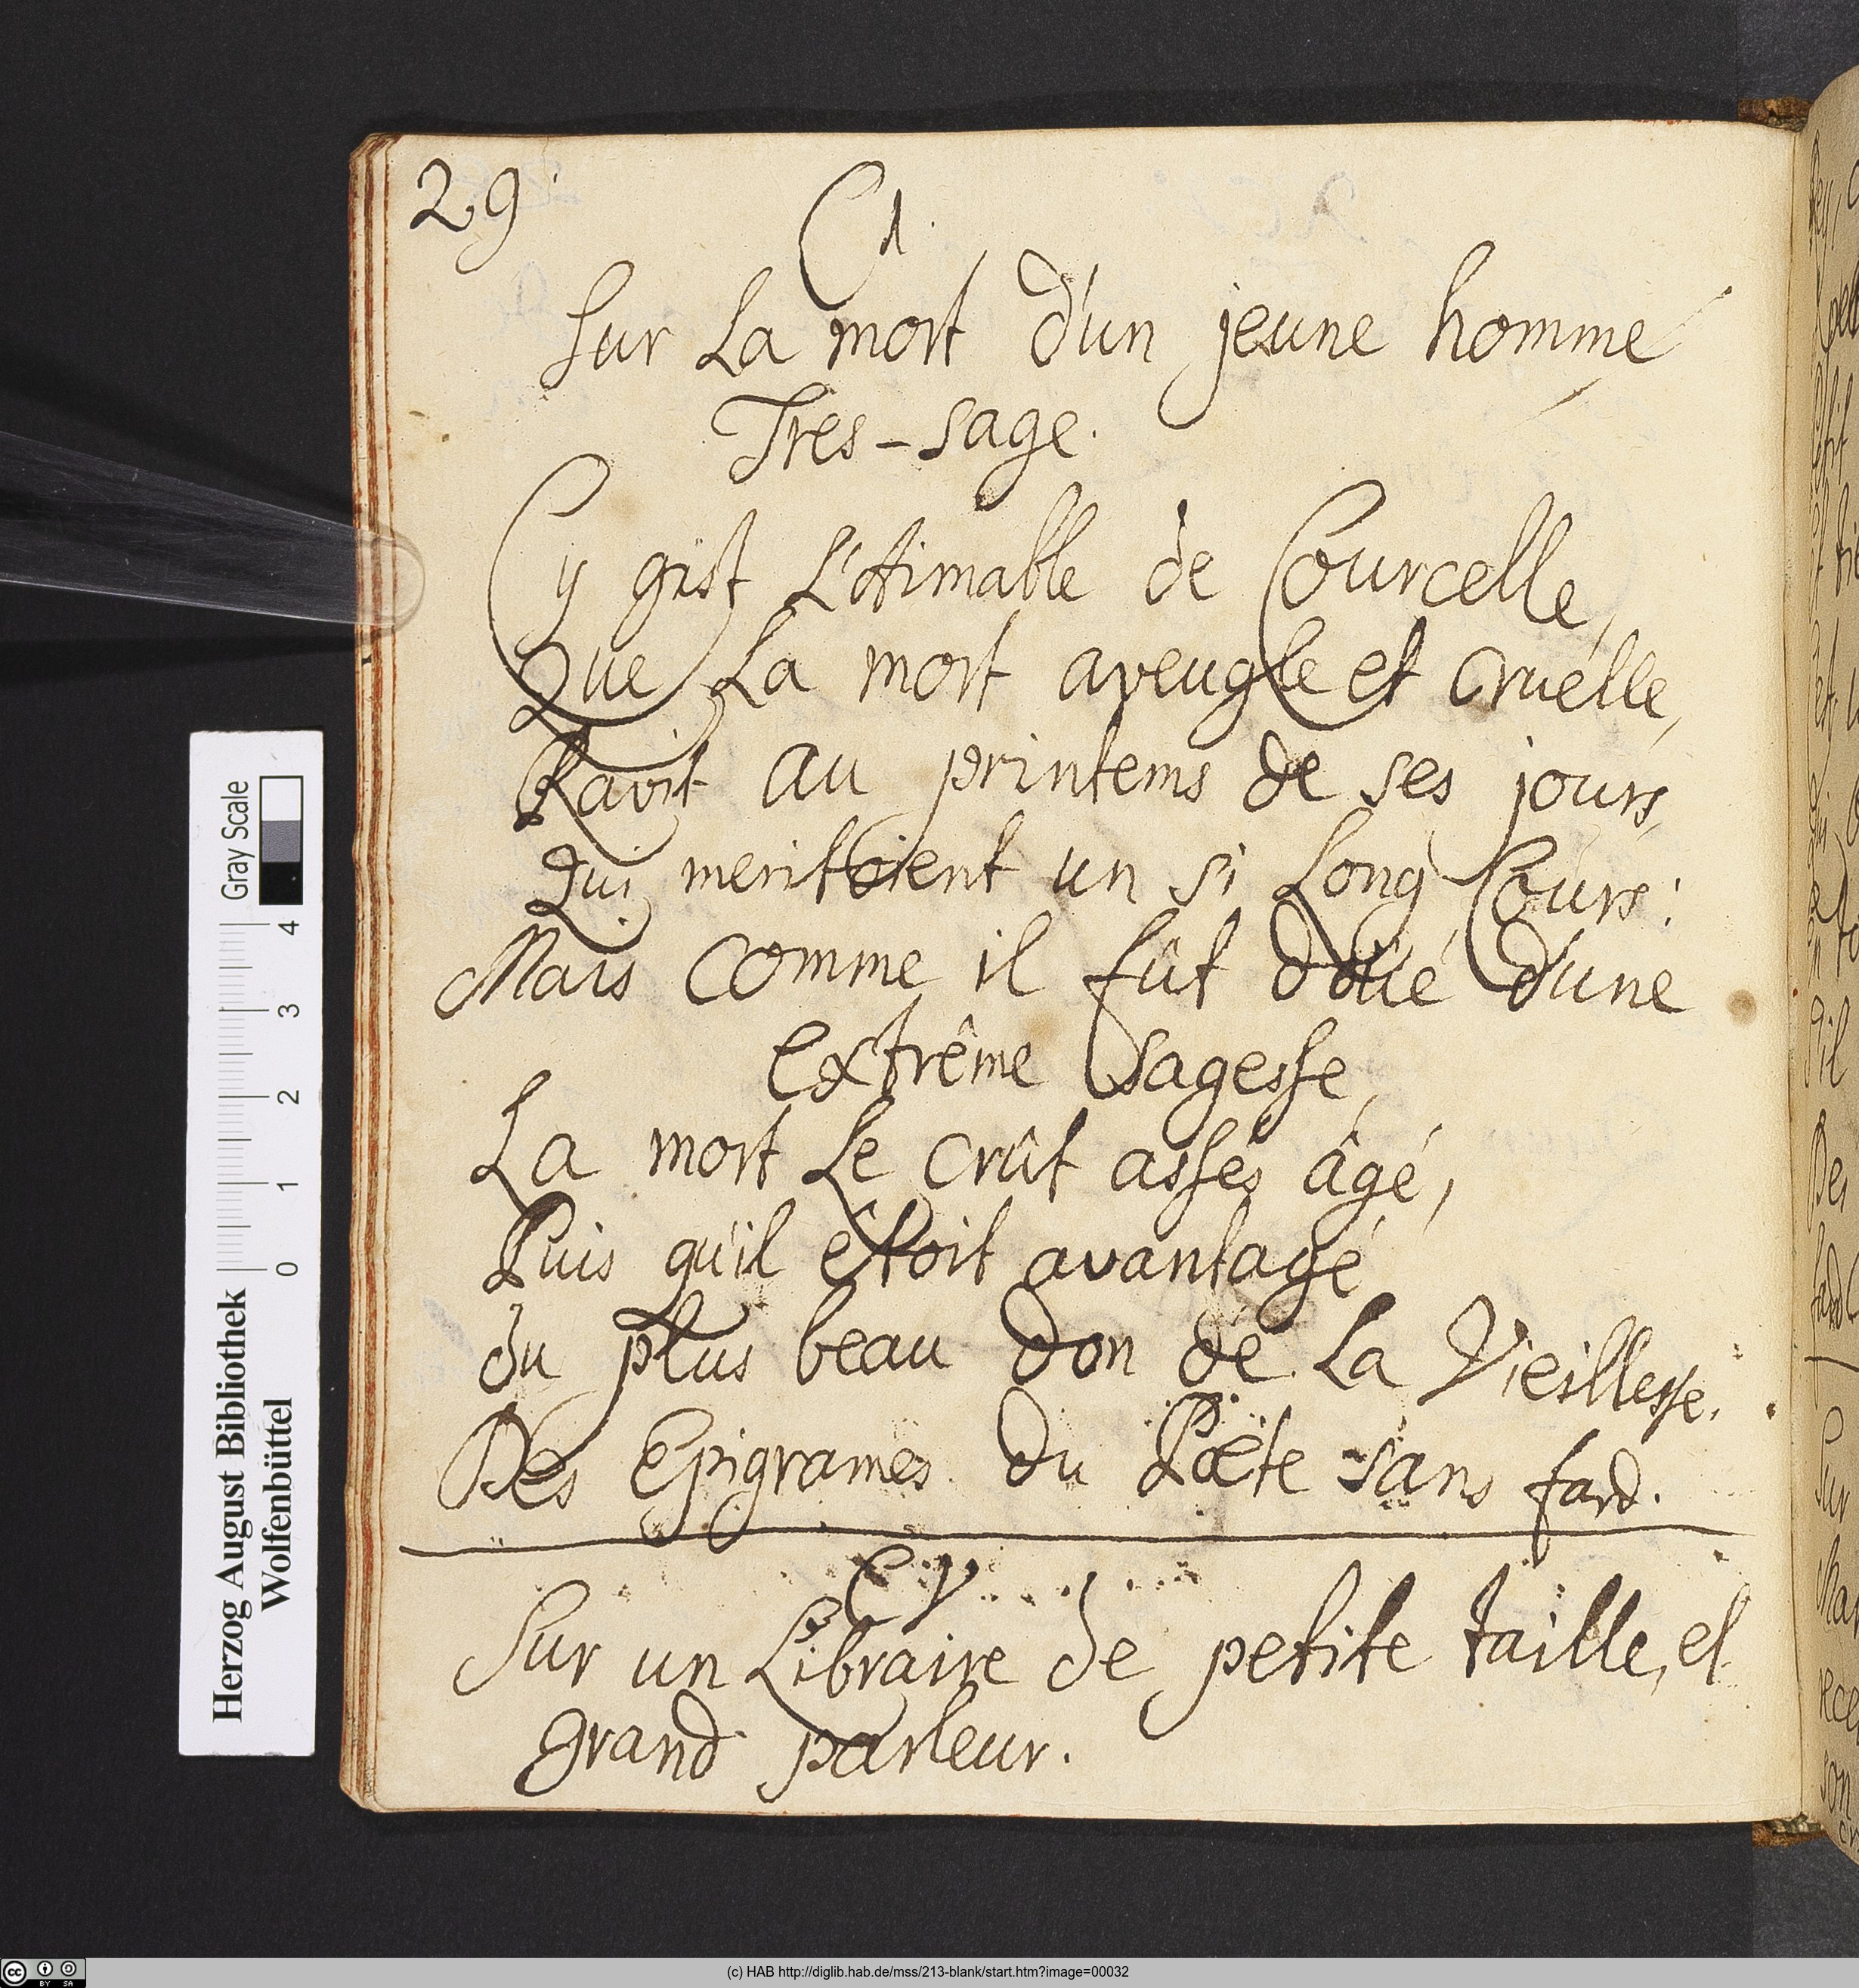 29.
C1.
Sur La mort d'un jeune homme
Tres-sage.
Cy gist L'Aimable de Courcelle,
Que La mort aveugle et cruélle,
Ravit au printems de ses jours,
Qui meritoient un si Long Cours:
Mais comme il fût doüé d'une
extrême sagesse,
La mort Le crût assés âgé,
Puis qu'il êtoit avantagé
du plus beau don de La Vieillesse.
Des Epigrames du Poëte sans fard.
CV
Sur un Libraire de petite taille, et
grand parleur.
Gray Scale
4 3 2 1 0
Herzog August Bibliothek
Wolfenbüttel
(c) HAB http://diglib.hab.de/mss/213-blank/start.htm?image=00032
cc BY SA